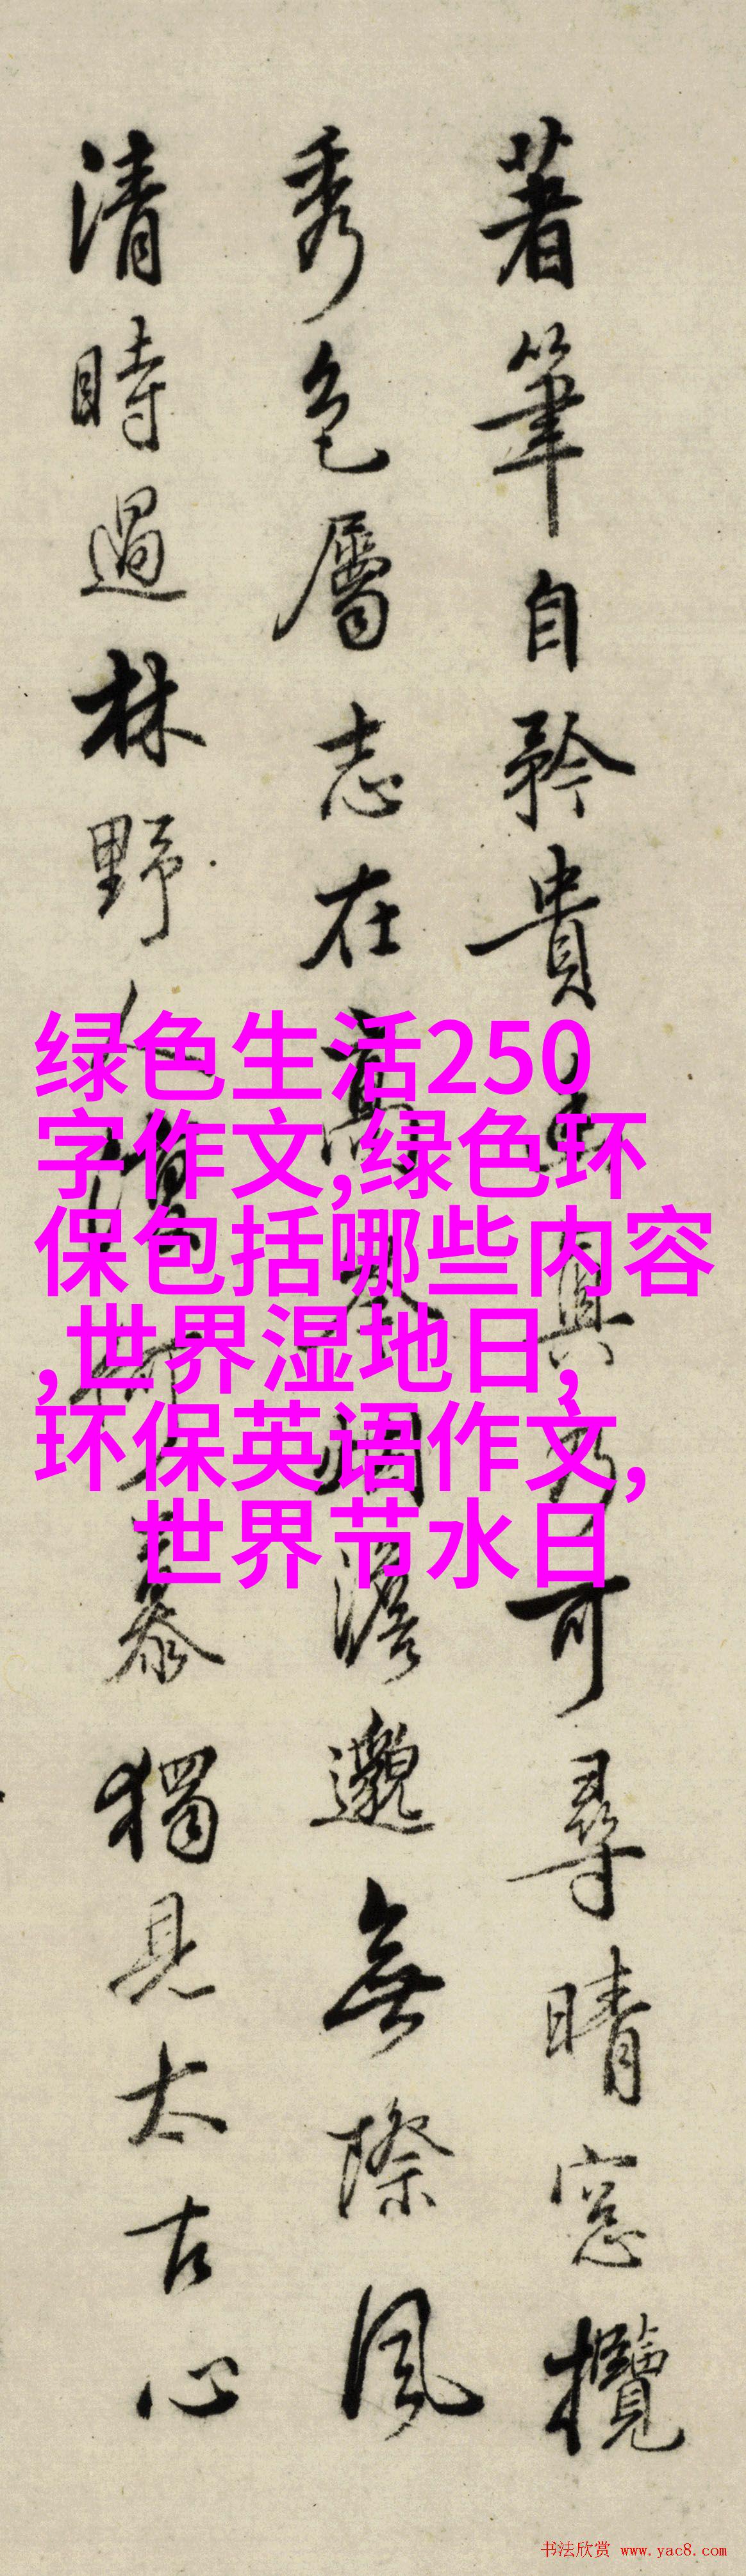 著筆自矜貴
真
可尋晴窓攬
秀色屬志在高
澹邈無際風
清時過林野人
暮獨見太古心
绿色生活250
字作文,绿色环
保包括哪些内容
,世界湿地日,
环保英语作文,
世界节水日
书法欣赏 www.yac8.com